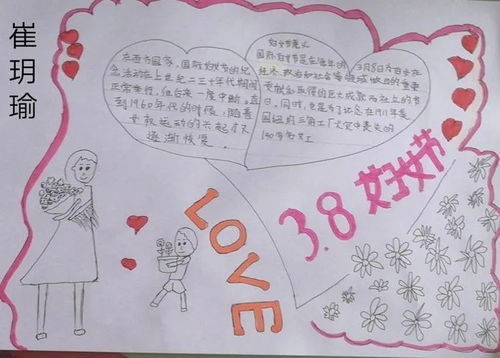 崔玥瑜
在西方国家，国际妇女节的纪
念活动在上世纪二三十年代期间
正常举行，但后来一度中断。直
到1960年代的时候，随着
女权运动的兴起才又
逐渐恢复。
妇女节意义
国际妇女节是在每年的3月8日为妇女在
经济、政治和社会等领域做出的重要
贡献和取得的巨大成就而设立的节
日，同时，也是为了纪念在1911年美
国纽约三角工厂火灾中丧失的
140多名女工
LOVE
3.8妇女节